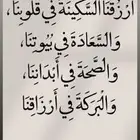 ارْزُقْنَا السَّكِينَةَ فِي قُلُوبِنَا،
وَالسَّعَادَةَ فِي بُيُوتِنَا،
وَالصِّحَّةَ فِي أَبْدَانِنَا،
وَالْبَرَكَةَ فِي أَرْزَاقِنَا